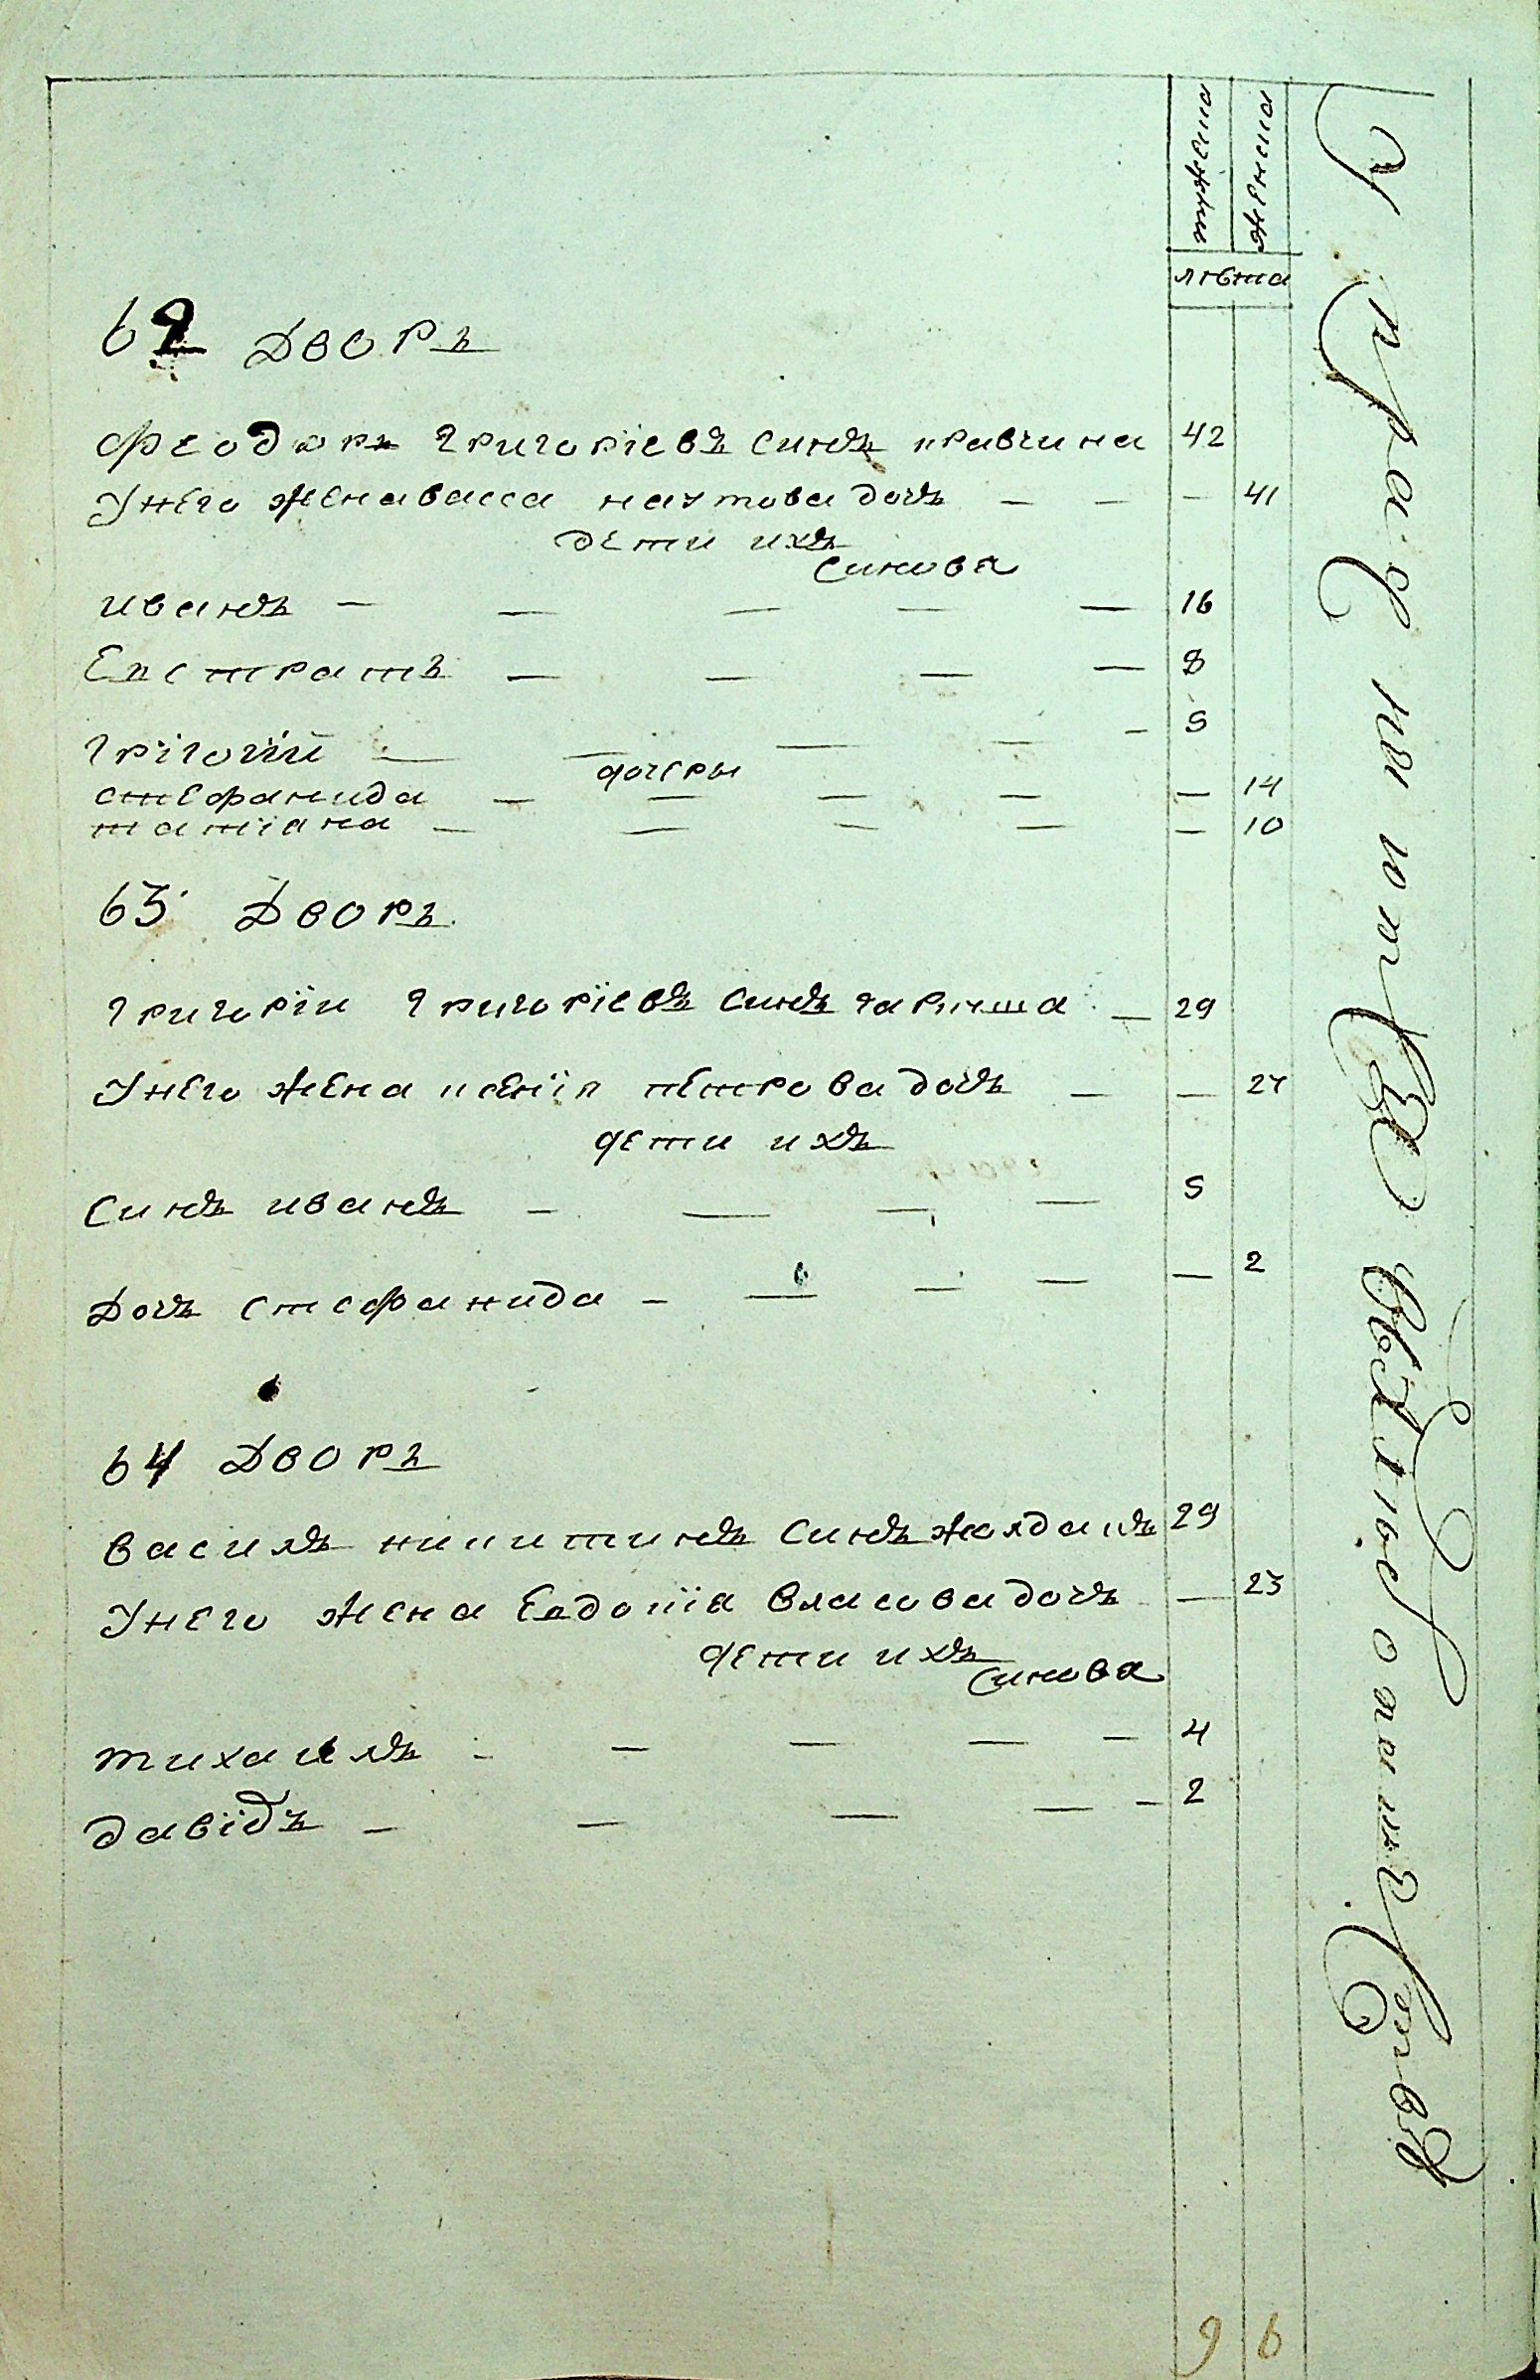 мужеска
женска
лѣта
62 Дворъ
Феодоръ Григорїевъ синъ кравчина 42
У него жена васса наумова дочь — — — 41
дети ихъ
синова
иванъ — — — — — 16
Евстратъ — — — — 8
Грїгорїй — — — — — 5
дочеры
стефанида — — — — — 14
татїана — — — — — 10
63 Дворъ
Григорїи Григорїевъ синъ — 29
У него жена ксенїя петрова дочь — — 27
дети ихъ
Синъ иванъ — — — — 5
Дочь стефанида — — — — — 2
64 Дворъ
василь никитинъ синъ жолдакъ 29
У него жена Евдокїя власова дочь — 23
дети ихъ
синова
михаилъ — — — — — 4
давїдъ — — — — — 2
9 6